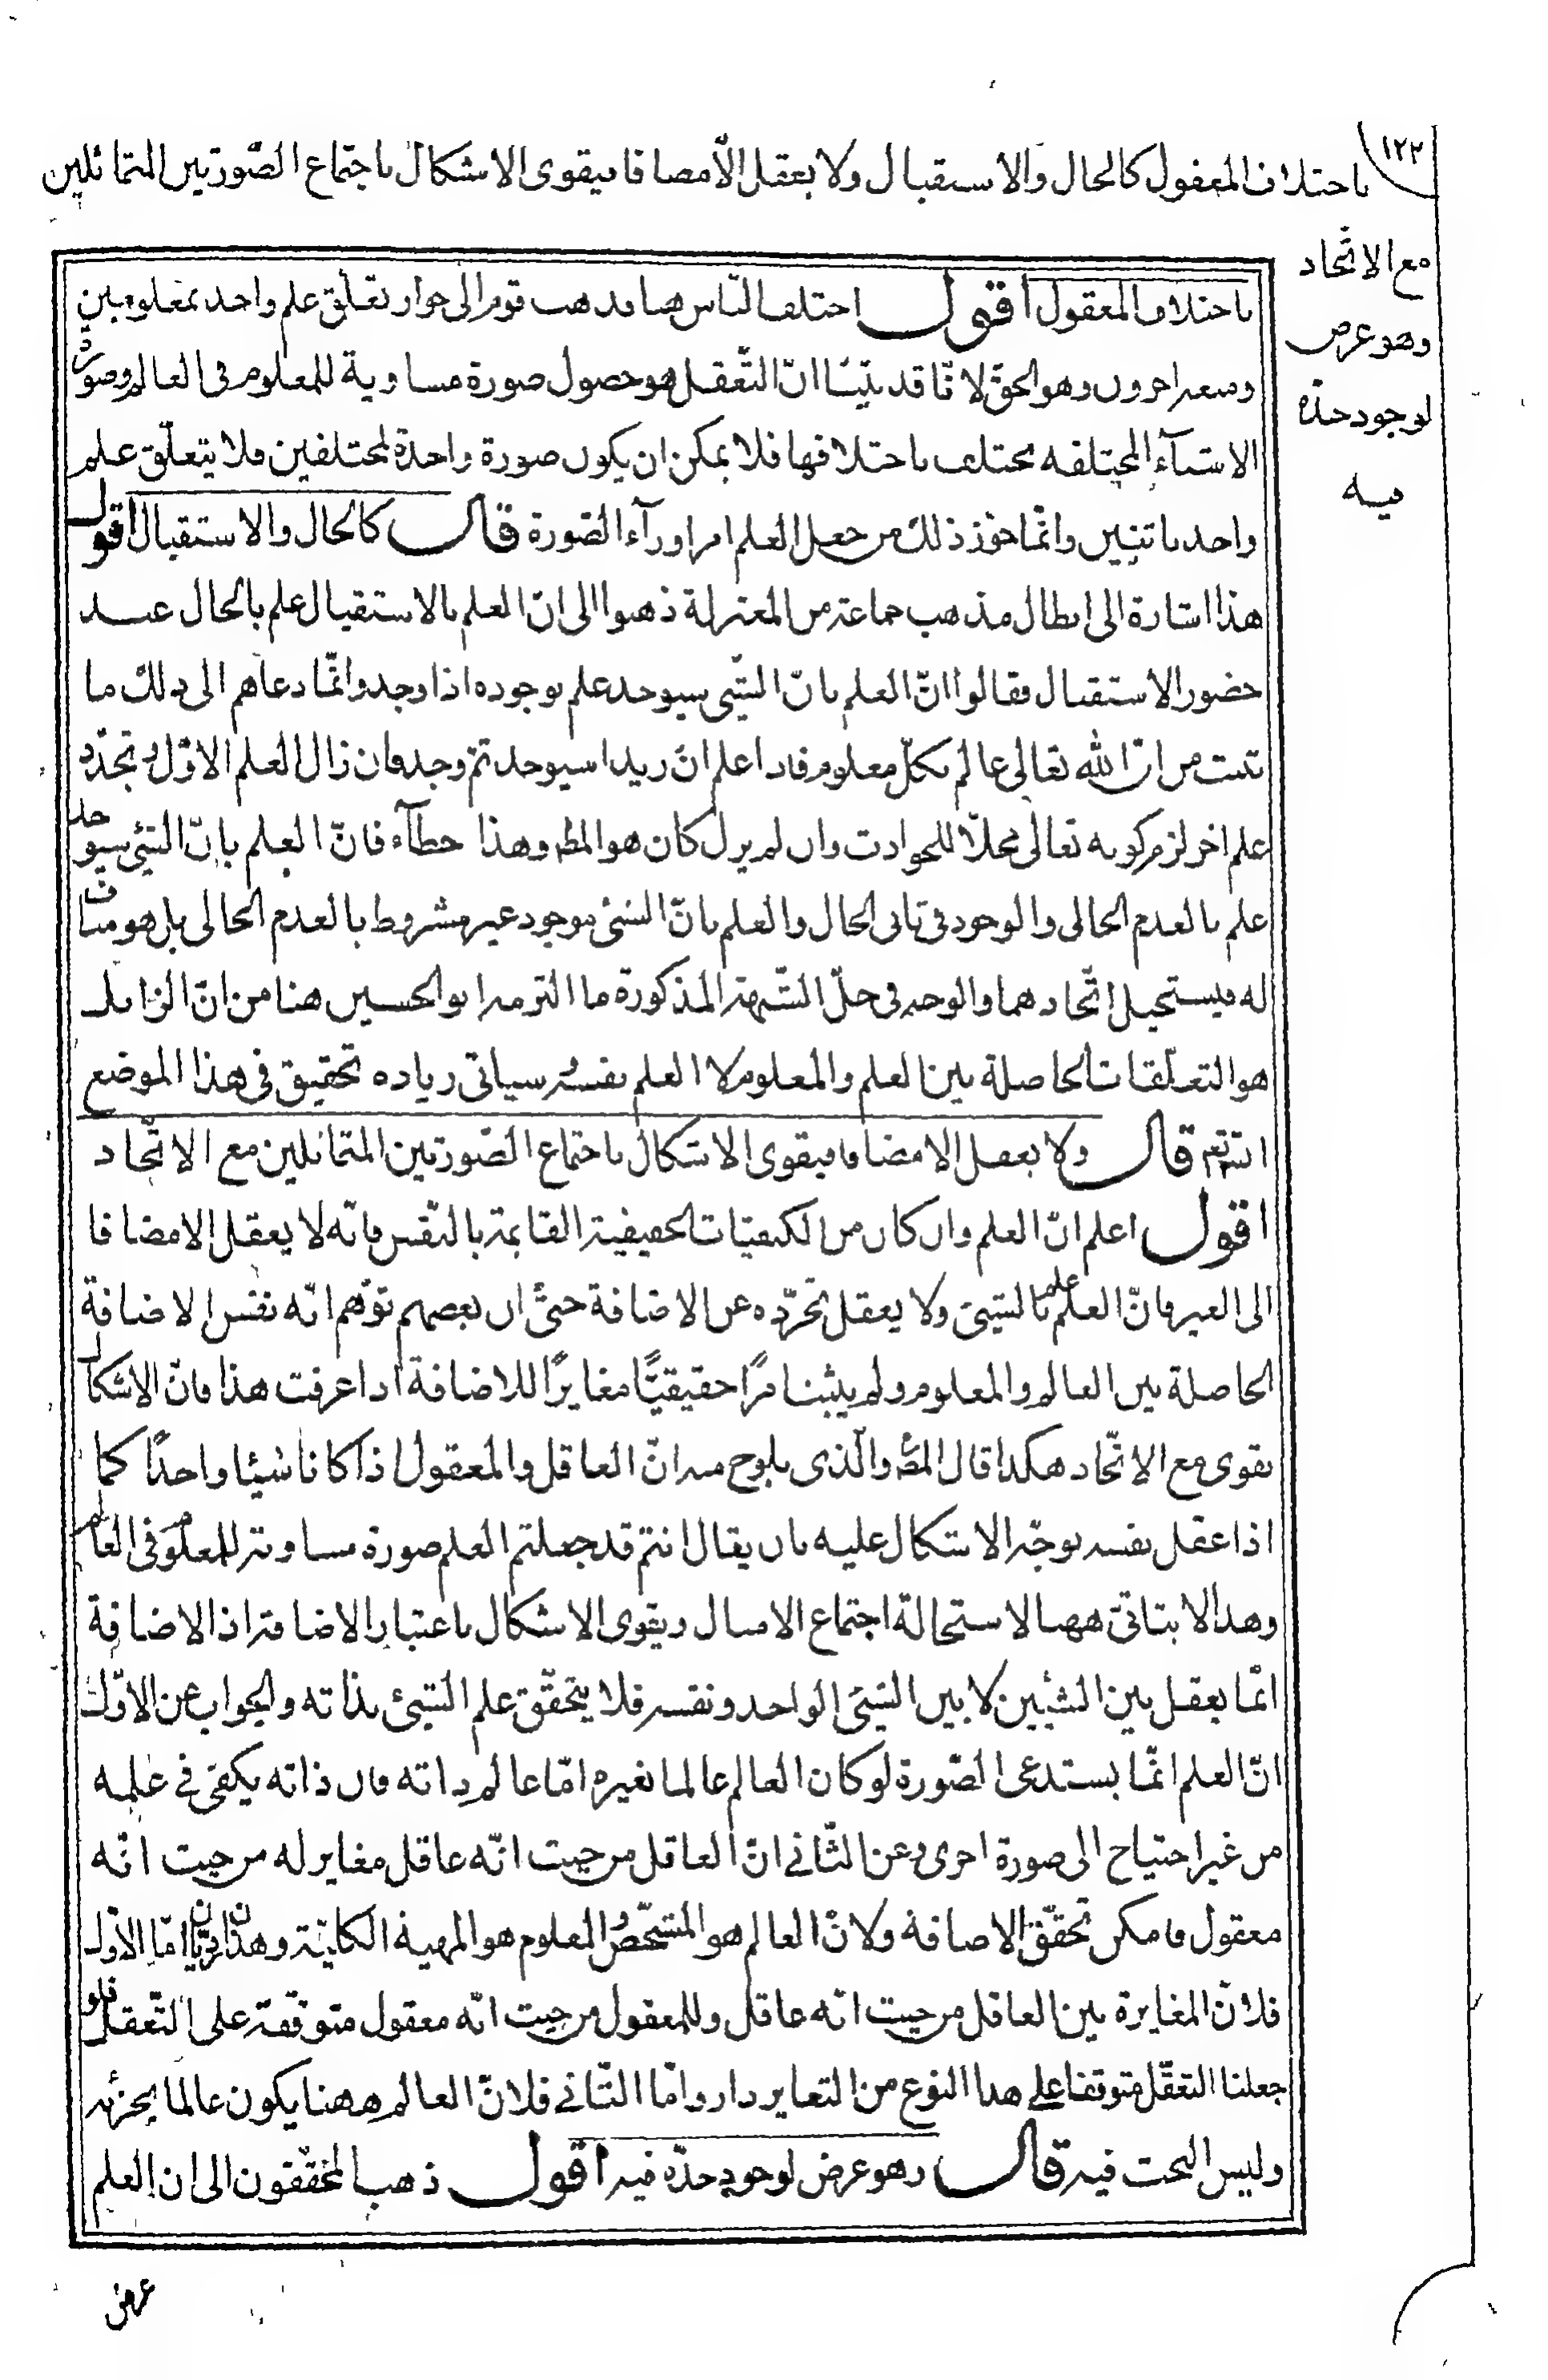 ١٢٢
باختلاف المعقول كالحال والاستقبال ولا يعقل الّا مضافا فيقوى الاشكال باجتماع الصّورتين المتماثلين
مع الاتّحاد
وهو عرض
لوجود حدّه
فيه
باختلاف المعقول اقول اختلف النّاس هنا فذهب قوم الى جواز تعلّق علم واحد بمعلومين
ومنعه اخرون وهو الحقّ لانّا قد بيّنّا انّ التّعقل هو حصول صورة مساوية للمعلوم فى العالم وصور
الاشيآء المختلفه تختلف باختلافها فلا يمكن ان يكون صورة واحدة لمختلفين فلا يتعلّق علم
واحد باثنين وانّما جوّز ذلك من جعل العلم امرا ورآء الصّورة قال كالحال والاستقبال اقول
هذا اشارة الى ابطال مذهب جماعة من المعتزلة ذهبوا الى انّ العلم بالاستقبال علم بالحال عند
حضور الاستقبال فقالوا انّ العلم بانّ الشّىء سيوجد علم بوجوده اذا وجد وانّما دعاهم الى ذلك ما
ثبت من انّ الله تعالى عالم بكلّ معلوم فاذا علم انّ زيدا سيوجد ثمّ وجد فان زال العلم الاوّل وتجدّد
علم اخر لزم كونه تعالى محلّا للحوادث وان لم يزل كان هو المط وهذا خطآء فانّ العلم بانّ الشّئ سيوجد
علم بالعدم الحالى والوجود فى ثانى الحال والعلم بانّ الشئ موجود غير مشروط بالعدم الحالى بل هو مناف
له فيستحيل اتّحادهما والوجه فى حلّ الشّبهة المذكورة ما التزمه ابو الحسين هنا من انّ الزايل
هو التعلّقات الحاصلة بين العلم والمعلوم لا العلم نفسه سياتى زياده تحقيق فى هذا الموضع
انش تعم قال ولا يعقل الا مضافا فيقوى الاشكال باجتماع الصّورتين المتماثلين مع الاتّحاد
اقول اعلم انّ العلم وان كان من الكيفيّات الحقيقية القائمة بالنّفس فانّه لا يعقل الا مضافا
الى الغير فانّ العلم علم بالشّيئ ولا يعقل تجرّده عن الاضافة حتّى ان بعضهم توهّم انّه نفس الاضافة
الحاصلة بين العالم والمعلوم ولم يثبت امرًا حقيقيًّا مغايرًا للاضافة اذا عرفت هذا فانّ الاشكال
يقوى مع الاتّحاد هكذا قال المصّ والّذى يلوح منه انّ العاقل والمعقول اذا كانا شيئا واحدًا كما
اذا عقل نفسه يوجّه الاشكال عليه بان يقال انتم قد جعلتم العلم صورة مساوية للمعلوم فى العالم
وهذا لا يتاتّى ههنا لاستحالة اجتماع الامثال ويقوى الاشكال باعتبار الاضافة اذ الاضافة
انّما يعقل بين الشيئين لا بين الشيئ الواحد ونفسه فلا يتحقّق علم الشّيئ بذاته والجواب عن الاوّل
انّ العلم انّما يستدعى الصّورة لو كان العالم عالما بغيره امّا عالم ذاته فان ذاته يكفى فى علمه
من غير احتياج الى صورة اخرى وعن الثّانى انّ العاقل من حيث انّه عاقل مغاير له من حيث انّه
معقول فامكن تحقّق الاضافة ولانّ العالم هو المشخّص والمعلوم هو المهية الكليّة وهذان رديّان امّا الاوّل
فلانّ المغايرة بين العاقل من حيث انّه عاقل وللمعقول من حيث انّه معقول متوقّفة على التّعقل فلو
جعلنا التعقّل متوقفا على هذا النوع من التغاير دار وامّا الثّانى فلانّ العالم ههنا يكون عالمًا بجزئه
وليس البحث فيه قال وهو عرض لوجود حدّه فيه اقول ذهب المحقّقون الى ان العلم
عرض